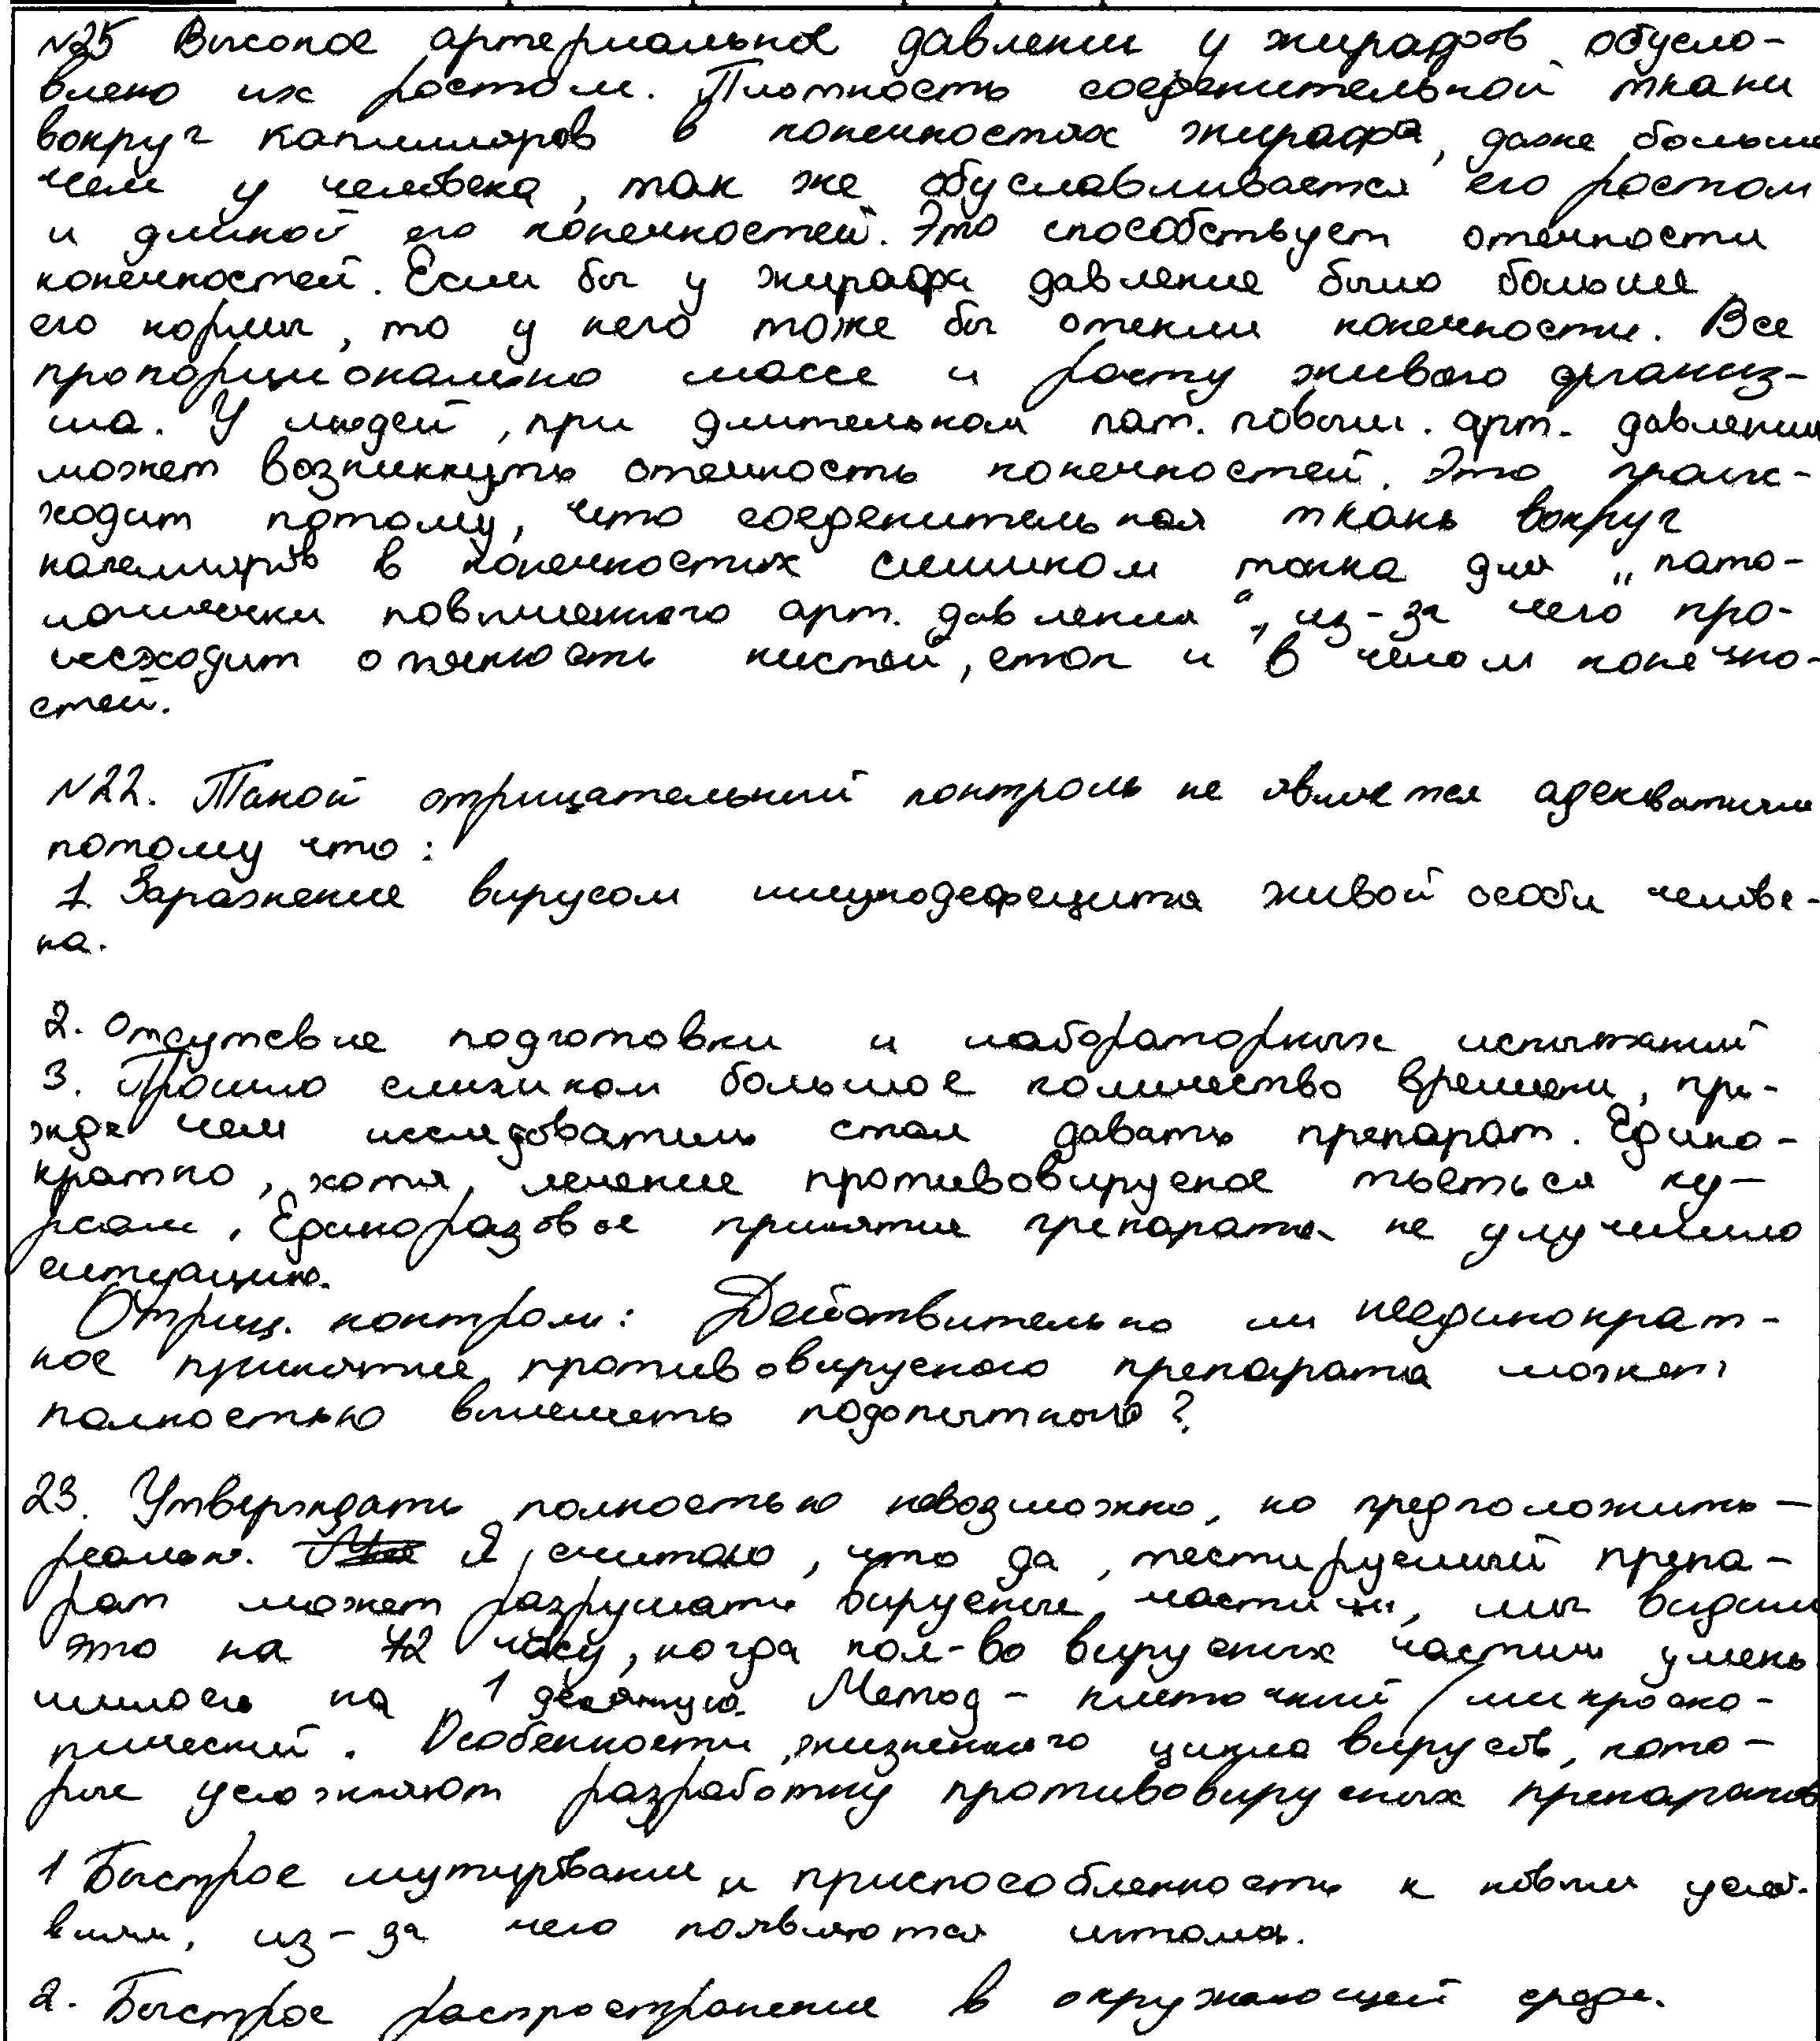 №25 Высокое артериальное давление у жирафов обусло-
влено их ростом. Плотность соеденительной ткани
вокруг капилляров в конечностях жирафа, даже больше
чем у человека, так же обуславливается его ростом
и длиной его конечностей. Это способствует отечности
конечностей. Если бы у жирафа давление было больше
его нормы, то у него тоже бы отекли конечности. Все
пропорционально массе и росту живого организ-
ма. У людей, при длительном пат. повыш. арт. давлении
может возникнуть отечность конечностей. Это проис-
ходит потому, что соеденительная ткань вокруг
капилляров в конечностях слишком тонка для "пато-
логически повышенного арт. давления", из-за чего про-
исходит отечность кистей, стоп и в целом конечно-
стей.
№22. Такой отрицательный контроль не является адекватным
потому что:
1. Заражение вирусом имунодефецита живой особи челове-
ка.
2. Отсутсвие подготовки и лабораторных испытаний
3. Прошло слишком большое количество времени, пре-
жде чем исследователь стал давать препарат. Едино-
кратно, хотя, лечение противовирусное пьеться ку-
рсом. Единоразовое принятие препарата не улучшило
ситуацию.
Отриц. контроль: Действительно ли неединократ-
ное принятие противовирусного препарата может
полностью вылечить подопытного?
23. Утверждать полностью невозможно, но предположить -
реально. Я считаю, что да, тестируемый препа-
рат может разрушать вирусные частицы, мы видим
это на 72 часу, когда кол-во вирусных частиц умень
шилось на 1 десятую. Метод - клеточный/микроско-
пический. Особенности жизненного цикла вирусов, кото-
рые усложняют разработку противовирусных препаратов
1 Быстрое мутирование и приспособленность к новым усло-
виям, из-за чего появляются штамы.
2. Быстрое распространение в окружающей среде.